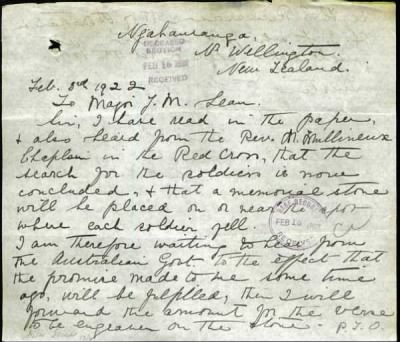 Ngahauranga,
Nr Wellington.
New Zealand.
DECEASED
SECTION
FEB 16
RECEIVED
Feb. 3rd 1922
To Major J. M. Lean.
Sir, I have read in the paper,
& also heard from the Rev. M. Mullineux
Chaplain in the Red Cross, that the
search for the soldiers is now
concluded, & that a memorial stone
will be placed on or near the spot
where each soldier fell.
FEB 16
I am therefore waiting to hear from
the Australian Govt to the effect that
the promise made to me some time
ago, will be fulfilled, then I will
forward the amount for the verse
to be engraven on the stone. P.T.O.